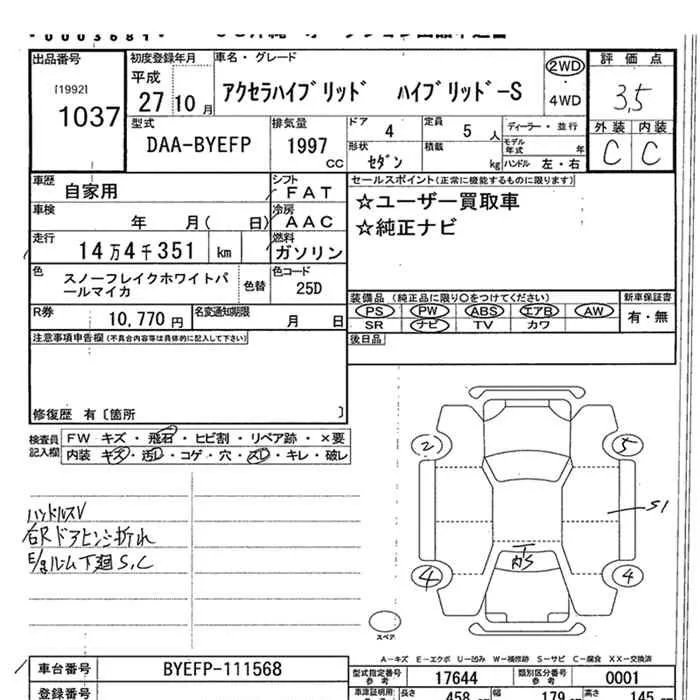 0003681
出品番号 初度登録年月 車名・グレード 評価点
[1992] 1037
平成 27 10月
アクセラハイブリッド ハイブリッド-S
2WD ・ 4WD
3,5
外装 内装
C C
型式 DAA-BYEFP
排気量 1997 CC
ドア 4 定員 5 人
形状 セダン 積載 kg
ディーラー・並行
モデル年式 年
ハンドル 左・右
車歴 自家用
シフト FAT
車検 年 月( 日)
冷房 AAC
走行 14万4千351 km
燃料 ガソリン
色 スノーフレイクホワイトパールマイカ 色替
色コード 25D
R券 10,770円 名変通知期限 月 日
セールスポイント(正常に機能するものに限ります)
☆ユーザー買取車
☆純正ナビ
装備品 (純正品に限り○をつけてください) 新車保証書
PS PW ABS エアB AW 有・無
SR ナビ TV カワ
後日品
注意事項申告欄(不具合内容等は具体的に記入して下さい)
修復歴 有〔箇所 〕
検査員記入欄
FW キズ・飛石・ヒビ割・リペア跡・×要
内装 キズ・汚レ・コゲ・穴・スレ・キレ・破レ
ハンドルスV
右Rドアヒンジ折れ
E/gルーム下廻S,C
2
5
S1
4
カS
4
スペア
A-キズ E-エクボ U-凹み W-補修跡 S-サビ C-腐食 XX-交換済
車台番号 BYEFP-111568
型式指定番号参考 17644 類別区分番号参考 0001
登録番号
車庫証明用参考 長さ 458 幅 179 高さ 145